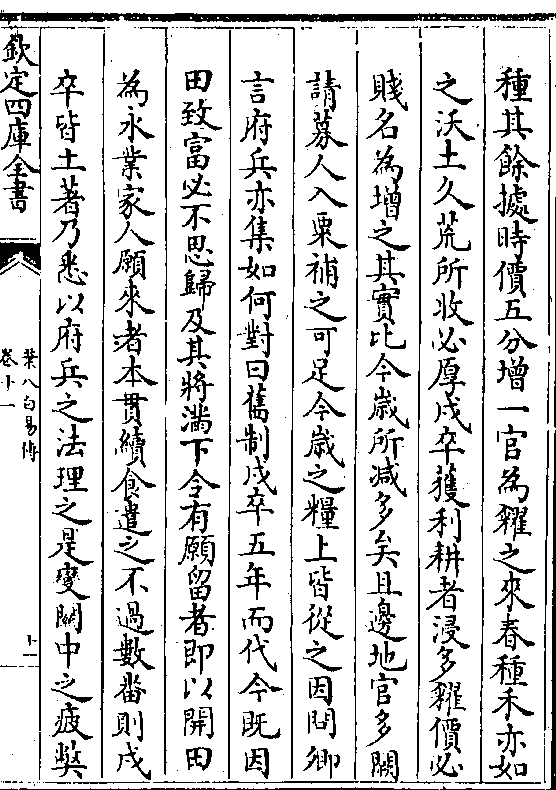 種其餘據時價五分增一官為糴之來春種禾亦如
之沃土久荒所收必厚戍卒獲利耕者浸多糴價必
賤名為增之其實比今歳所减多矣且邊地官多闕
請募人入粟補之可足今歳之糧上皆從之因問卿
言府兵亦集如何對曰舊制戍卒五年而代今既因
田致富必不思歸及其將滿下令有願留者即以開田
為永業家人願來者本貫續食遣之不過數番則戍
卒皆土著乃悉以府兵之法理之是變闗中之疲弊
欽定四庫全書
葉八白易傳
卷十一
十一